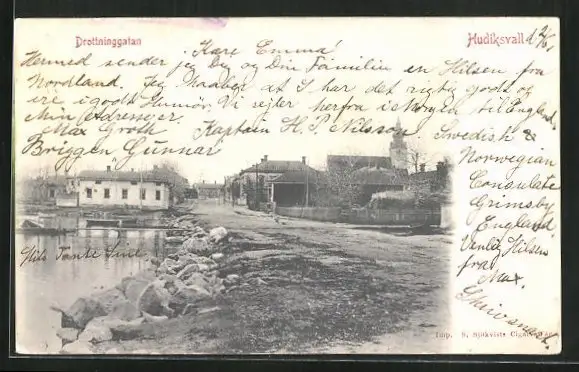 Drottninggatan
Hudiksvall
12/6
Kare Emma!
Hermed sender jeg Deg og Din Familie en Hilsen fra
Nordland. Jeg haaber at I har det rigtig godt og
ere i godt Humör. Vi sejler herfra i til England
Min Adresse er
Max Groth Kaptain H. P. Nilsson Swedish &
Briggen Gunnar
Norwegian
Consulate
Grimsby
England.
Venlig Hilsen
fra
Max.
Skriv snart.
Hils Tante
Imp. S. Sjökvists Cigarraffär